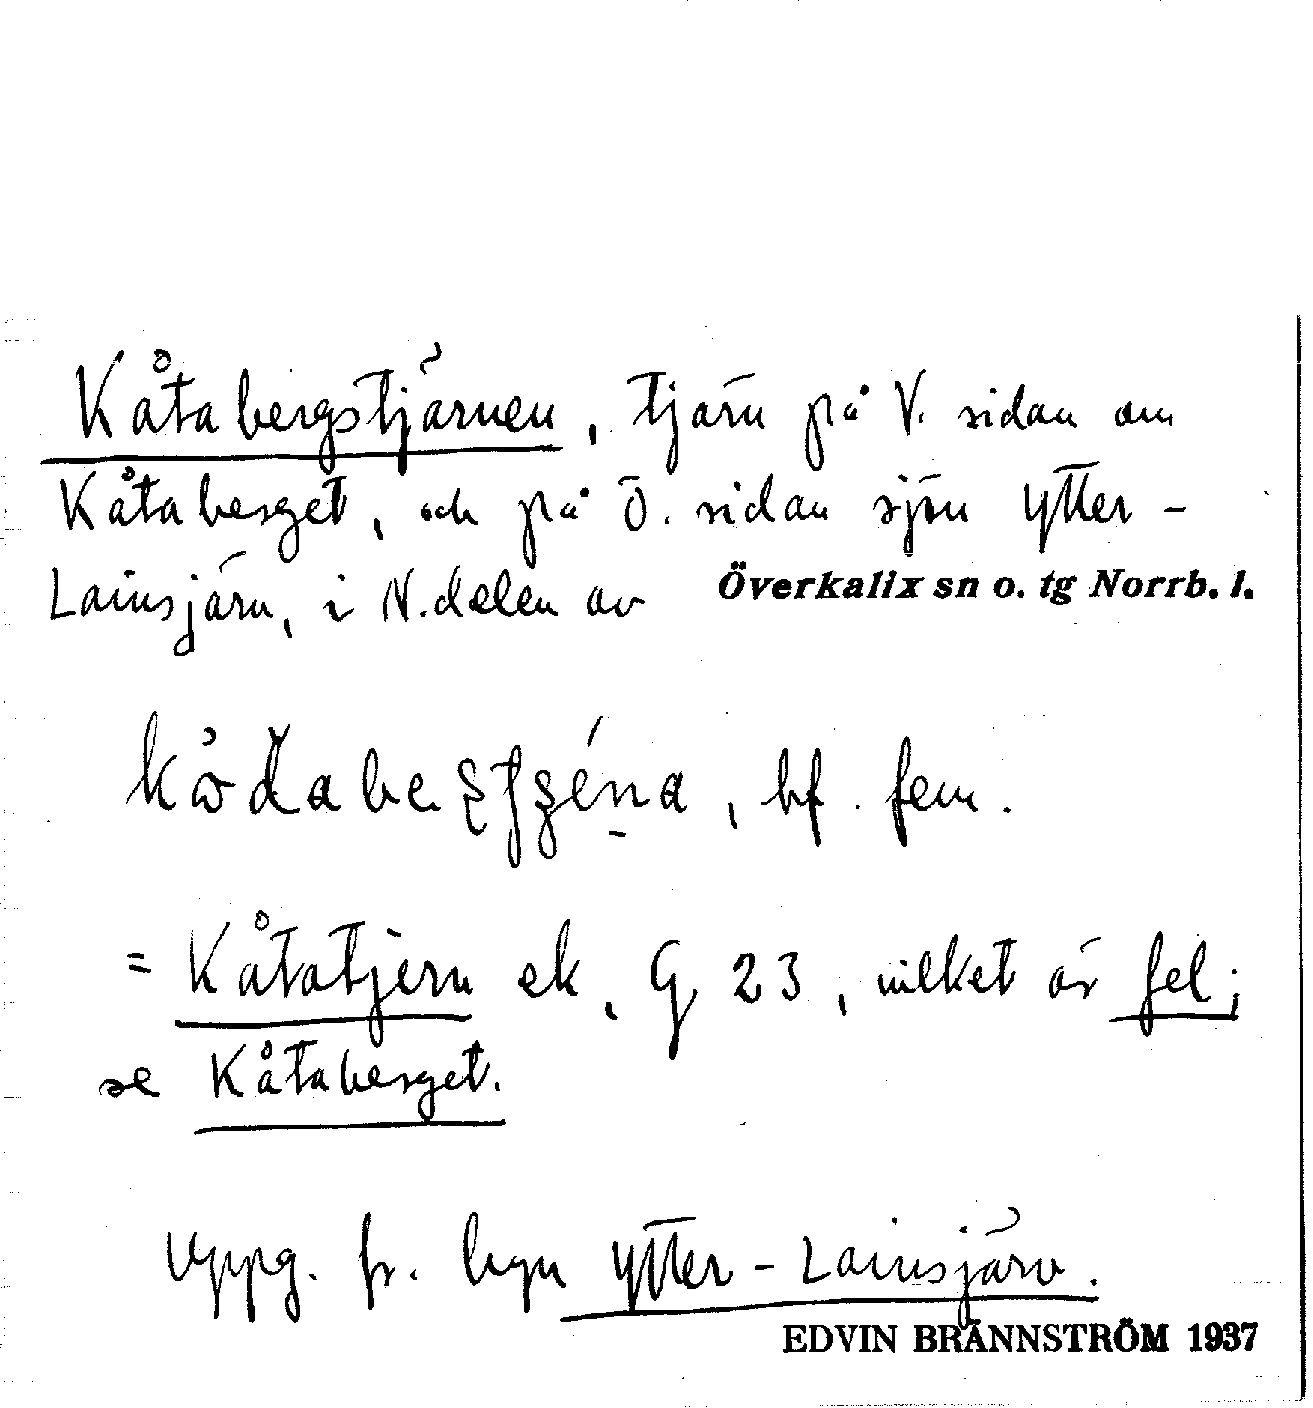 Kåtabergstjärnen, tjärn på V. sidan om
Kåtaberget, och på Ö. sidan sjön Ytter-
Lainsjärv, i N. delen av Överkalix sn o. tg Norrb. l.
, bf. fem.
= Kåtatjern ek. G 23, vilket är fel;
se Kåtaberget.
Uppg. fr. byn Ytter-Lainsjärv.
EDVIN BRÄNNSTRÖM 1937